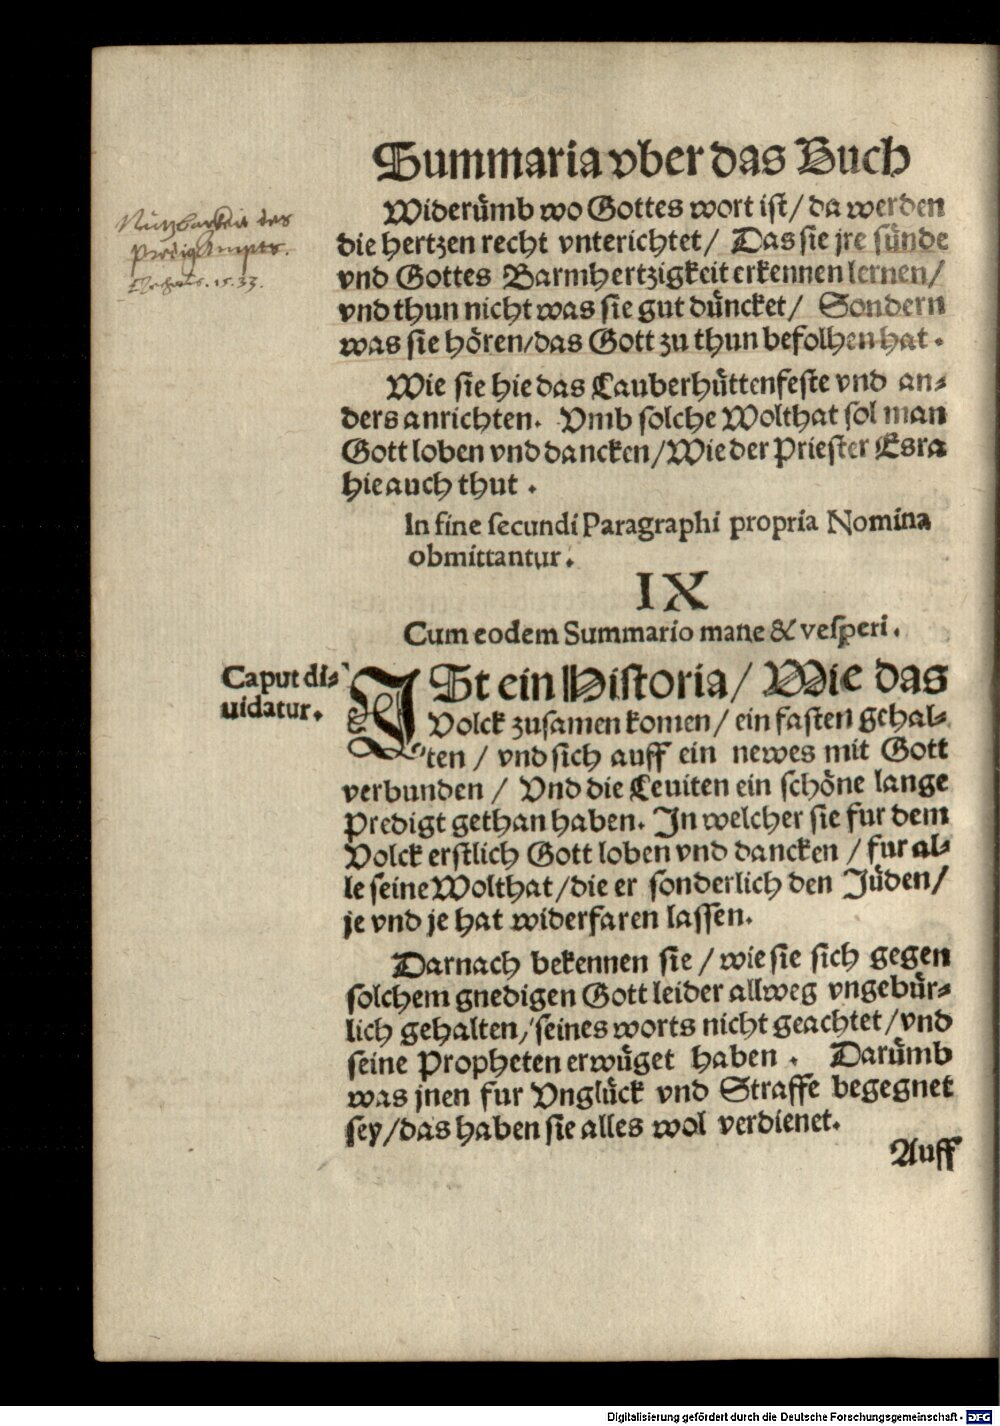 Summaria vber das Buch
Nutzbarkeit des
Predigampts.
Widerümb wo Gottes wort ist/ da werden
die hertzen recht vnterichtet/ Das sie jre sünde
vnd Gottes Barmhertzigkeit erkennen lernen/
vnd thun nicht was sie gut düncket/ Sondern
was sie hören/das Gott zu thun befolhen hat.
Wie sie hie das Lauberhüttenfeste vnd an⸗
ders anrichten. Vmb solche Wolthat sol man
Gott loben vnd dancken/Wie der Priester Esra
hie auch thut.
In fine secundi Paragraphi propria Nomina
obmittantur.
IX
Cum eodem Summario mane & vesperi.
Caput di⸗
uidatur.
ISt ein Historia/ Wie das
Volck zusamen komen/ ein fasten gehal⸗
ten/ vnd sich auff ein newes mit Gott
verbunden/ Vnd die Leuiten ein schöne lange
Predigt gethan haben. In welcher sie fur dem
Volck erstlich Gott loben vnd dancken/ fur al⸗
le seine Wolthat/die er sonderlich den Jüden/
je vnd je hat widerfaren lassen.
Darnach bekennen sie/ wie sie sich gegen
solchem gnedigen Gott leider allweg vngebür⸗
lich gehalten, seines worts nicht geachtet/vnd
seine Propheten erwüget haben. Darümb
was jnen fur Vnglück vnd Straffe begegnet
sey/das haben sie alles wol verdienet.
Auff
Digitalisierung gefördert durch die Deutsche Forschungsgemeinschaft - DFG